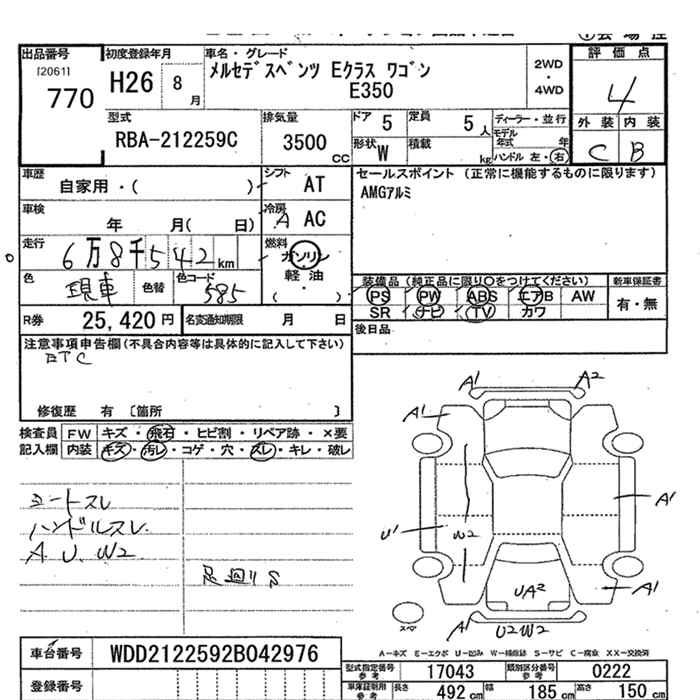 出品番号 初度登録年月 車名・グレード 評価点
120611
770
H26 8月
メルセデスベンツ Eクラス ワゴン
E350
2WD
・
4WD
4
型式 排気量 ドア 5 定員 5人 ディーラー・並行
RBA-212259C 3500cc
形状 W 積載 kg
モデル年式 年
ハンドル 左・右
外装 内装
C B
車歴 自家用・( )
シフト AT
車検 年 月( 日)
冷房 A AC
走行 6万8千542km
燃料 ガソリン
軽・油
( )
色 現車 色替 色コード 585
R券 25,420円 名変通知期限 月 日
セールスポイント (正常に機能するものに限ります)
AMGアルミ
装備品 (純正品に限り○をつけてください) 新車保証書
PS PW ABS エアB AW 有・無
SR ナビ TV カワ
後日品
注意事項申告欄(不具合内容等は具体的に記入して下さい)
ETC
修復歴 有 〔箇所 〕
検査員 FW キズ・飛石・ヒビ割・リペア跡・×要
記入欄 内装 キズ・汚レ・コゲ・穴・スレ・キレ・破レ
シートスレ
ハンドルスレ
A U W2
足廻りS
A1 A2
A1
A1
U1 W2
UA2 A1
スペア
A1 U2W2
A-キズ E-エクボ U-凹み W-補修跡 S-サビ C-腐食 XX-交換済
車台番号 WDD2122592B042976
登録番号
型式指定番号 参考 17043 類別区分番号 参考 0222
車庫証明用 参考 長さ 492cm 幅 185cm 高さ 150cm